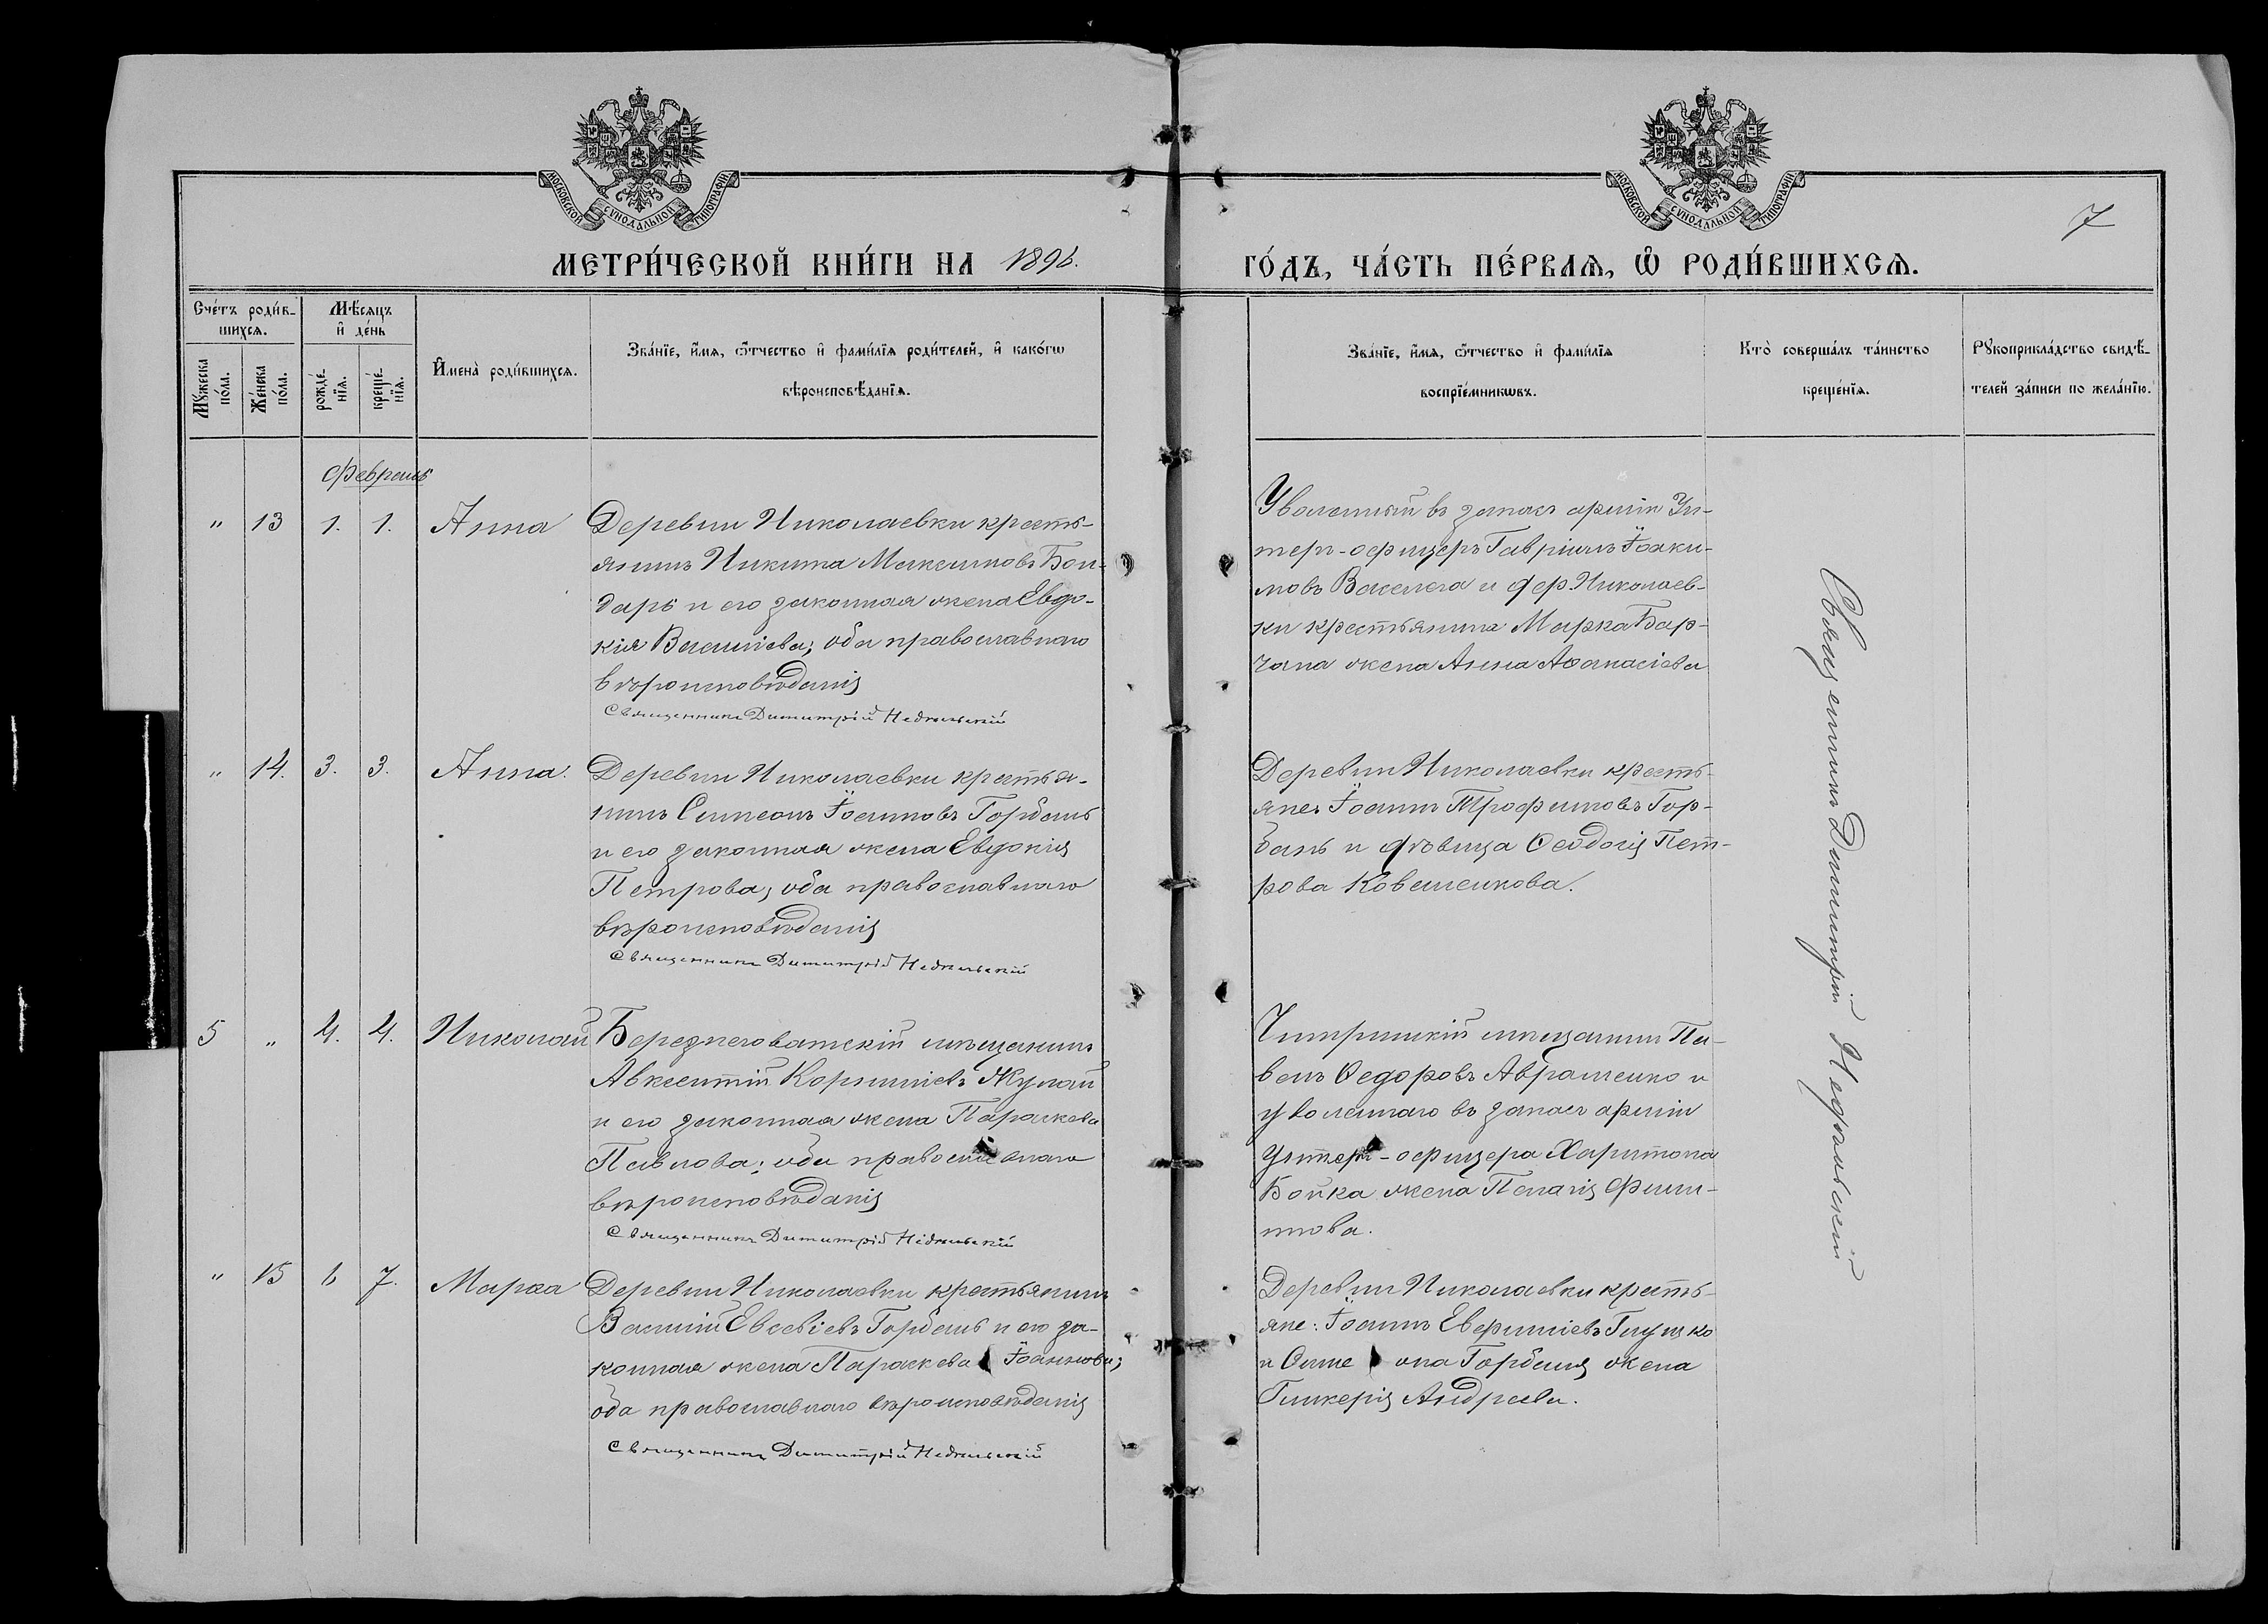 МОСКОВСКОЙ СѴНОДАЛЬНОЙ ТИПОГРАФІИ
МОСКОВСКОЙ СѴНОДАЛЬНОЙ ТИПОГРАФІИ
7
МЕТРИ́ЧЕСКОЙ КНИ́ГИ НА 1896.
ГО́ДЪ, ЧА́СТЬ ПЕ́РВАѦ, Ѡ РОДИ́ВШИХСѦ.
Сче́тъ роди́в-
шихсѧ.
Мꙋ́жеска
по́ла.
Же́нска
по́ла.
Мѣ́сѧцъ
и҆ де́нь
рожде́-
нїѧ.
креще́-
нїѧ.
И҆мена̀ роди́вшихсѧ.
Зва́нїе, и҆́мѧ, ѻ҆́тчество и҆ фами́лїѧ роди́телей, и҆ како́гѡ
вѣроисповѣ́данїѧ.
Зва́нїе, и҆́мѧ, ѻ҆́тчество и҆ фами́лїѧ
воспрїе́мникѡвъ.
Кто̀ соверша́лъ та́инство
креще́нїѧ.
Рꙋкоприкла́дство свидѣ́-
телей за́писи по жела́нїю.
Февраль
" 13 1. 1. Анна
Деревни Николаевки кресть-
янинъ Никита Максимовъ Бон-
дарь и его законная жена Евдо-
кія Васильева; оба православнаго
вѣроисповѣданія
Священникъ Димитрій Недѣльскій
Уволенный въ запасъ арміи Ун-
теръ-офицеръ Гавріилъ Іоаки-
мовъ Васелега и дер. Николаев-
ки крестьянина Марка Бар-
чана жена Анна Аѳанасіева
" 14. 3. 3. Анна.
Деревни Николаевки крестья-
нинъ Симеонъ Іоанновъ Горбань
и его законная жена Евдокія
Петрова, оба православнаго
вѣроисповѣданія
Священникъ Димитрій Недѣльскій
Деревни Николаевки кресть-
яне: Іоаннъ Трофимовъ Гор-
бань и дѣвица Ѳеодосія Пет-
рова Коваленкова.
5 " 4. 4. Николай
Березнеговатскій мѣщанинъ
Авксентій Корниліевъ Жулай
и его законная жена Параскева
Павлова; оба православнаго
вѣроисповѣданія
Священникъ Димитрій Недѣльскій
Чигринскій мѣщанинъ Па-
велъ Ѳедоровъ Авраменко и
уволеннаго въ запасъ арміи
Унтеръ-офицера Харитона
Бойка жена Пелагія Филип-
пова.
" 15 6 7. Марѳа
Деревни Николаевки крестьянинъ
Василій Евсевіевъ Горбань и его за-
конная жена Параскева Іоаннова;
оба православнаго вѣроисповѣданія
Священникъ Димитрій Недѣльскій
Деревни Николаевки кресть-
яне: Іоаннъ Евфиміевъ Глушко
и Симеона Горбаня жена
Гликерія Андреева.
Священникъ Димитрій Недѣльскій